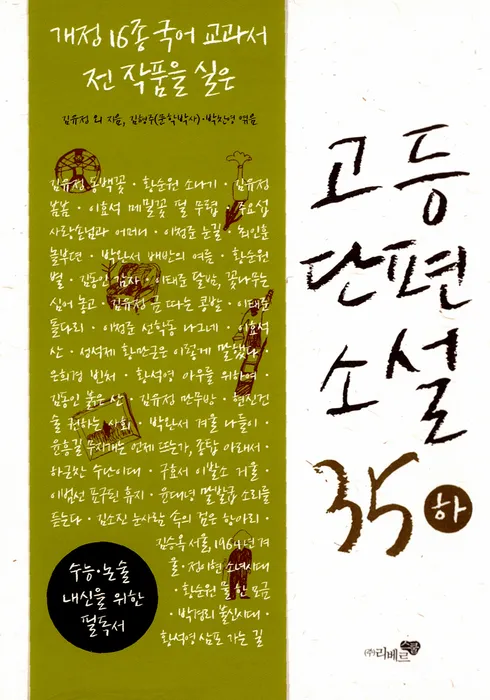 개정 16종 국어 교과서
전 작품을 실은
김유정 외 지음, 김형주(문학박사)·박찬영 엮음
김유정 동백꽃 · 황순원 소나기 · 김유정
봄봄 · 이효석 메밀꽃 필 무렵 · 주요섭
사랑손님과 어머니 · 이청준 눈길 · 최인훈
놀부뎐 · 박완서 배반의 여름 · 황순원
별 · 김동인 감자 · 이태준 달밤, 꽃나무는
심어 놓고 · 김유정 금 따는 콩밭 · 이태준
돌다리 · 이청준 선학동 나그네 · 이효석
산 · 성석제 황만근은 이렇게 말했다 ·
은희경 빈처 · 황석영 아우를 위하여 ·
김동인 붉은 산 · 김유정 만무방 · 현진건
술 권하는 사회 · 박완서 겨울 나들이 ·
윤흥길 무지개는 언제 뜨는가, 종탑 아래서 ·
하근찬 수난이대 · 구효서 이발소 거울 ·
이범선 표구된 휴지 · 윤대녕 말발굽 소리를
듣는다 · 김소진 눈사람 속의 검은 항아리 ·
김승옥 서울, 1964년 겨
울 · 정이현 소녀시대
· 황순원 물 한 모금
· 박경리 불신시대 ·
황석영 삼포 가는 길
수능·논술
내신을 위한
필독서
고등
단편
소설
35 하
(주)리베르
스쿨